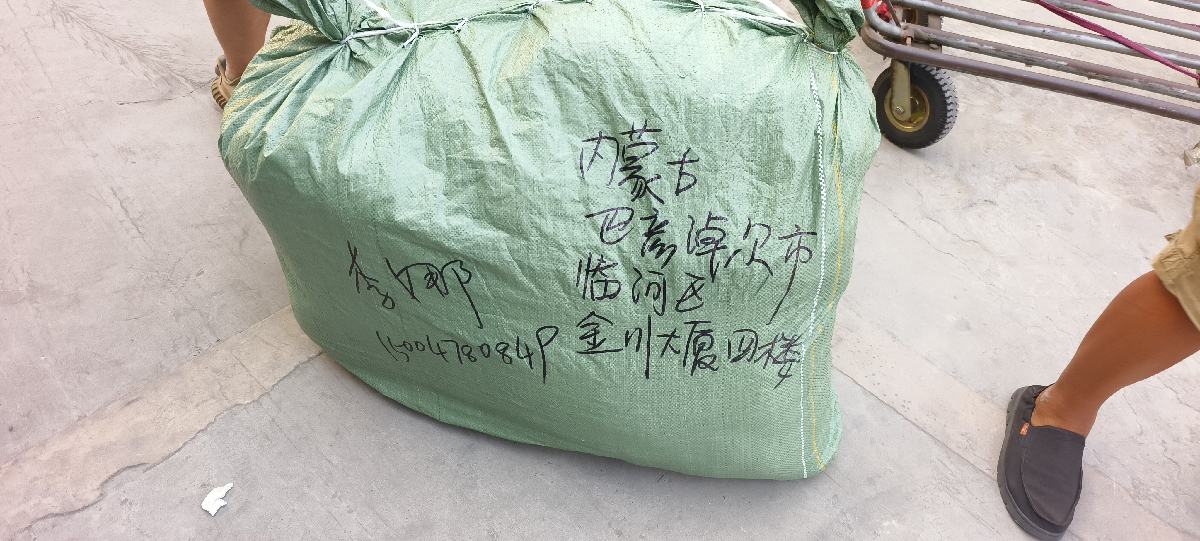 内蒙古
巴彦淖尔市
临河区
金川大厦四楼
李娜
15004780849